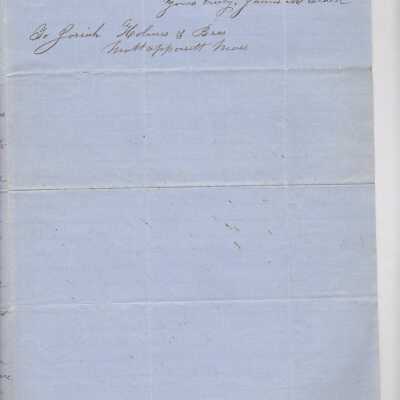 Yours truly, James M Clark
To Josiah Holmes & Bros
Mattapoisett Mass